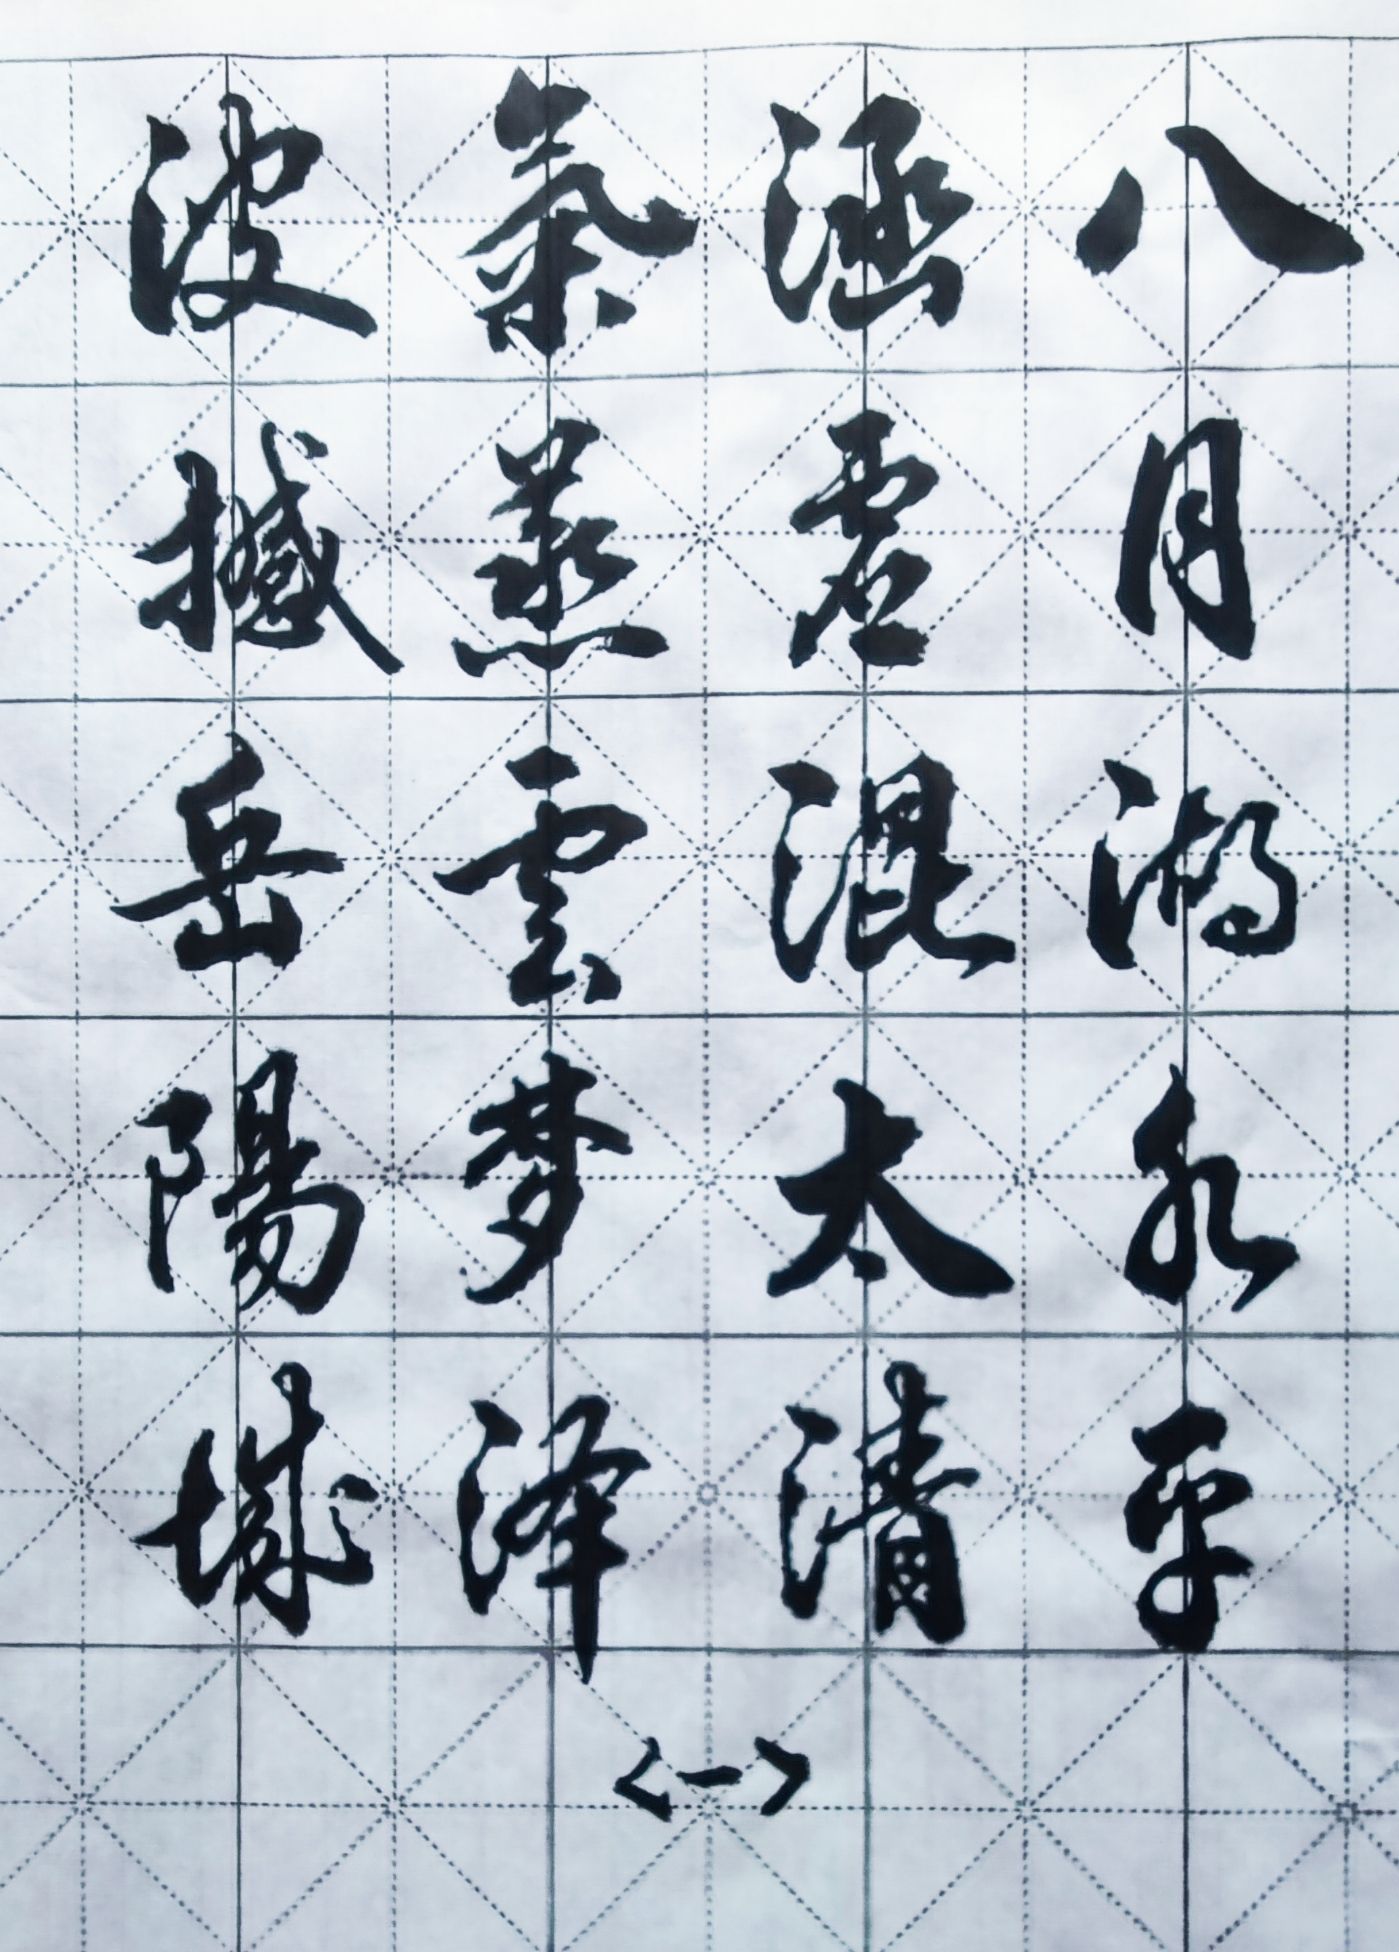 八月湖水平
涵虚混太清
氣蒸雲梦泽
波撼岳陽城
<一>